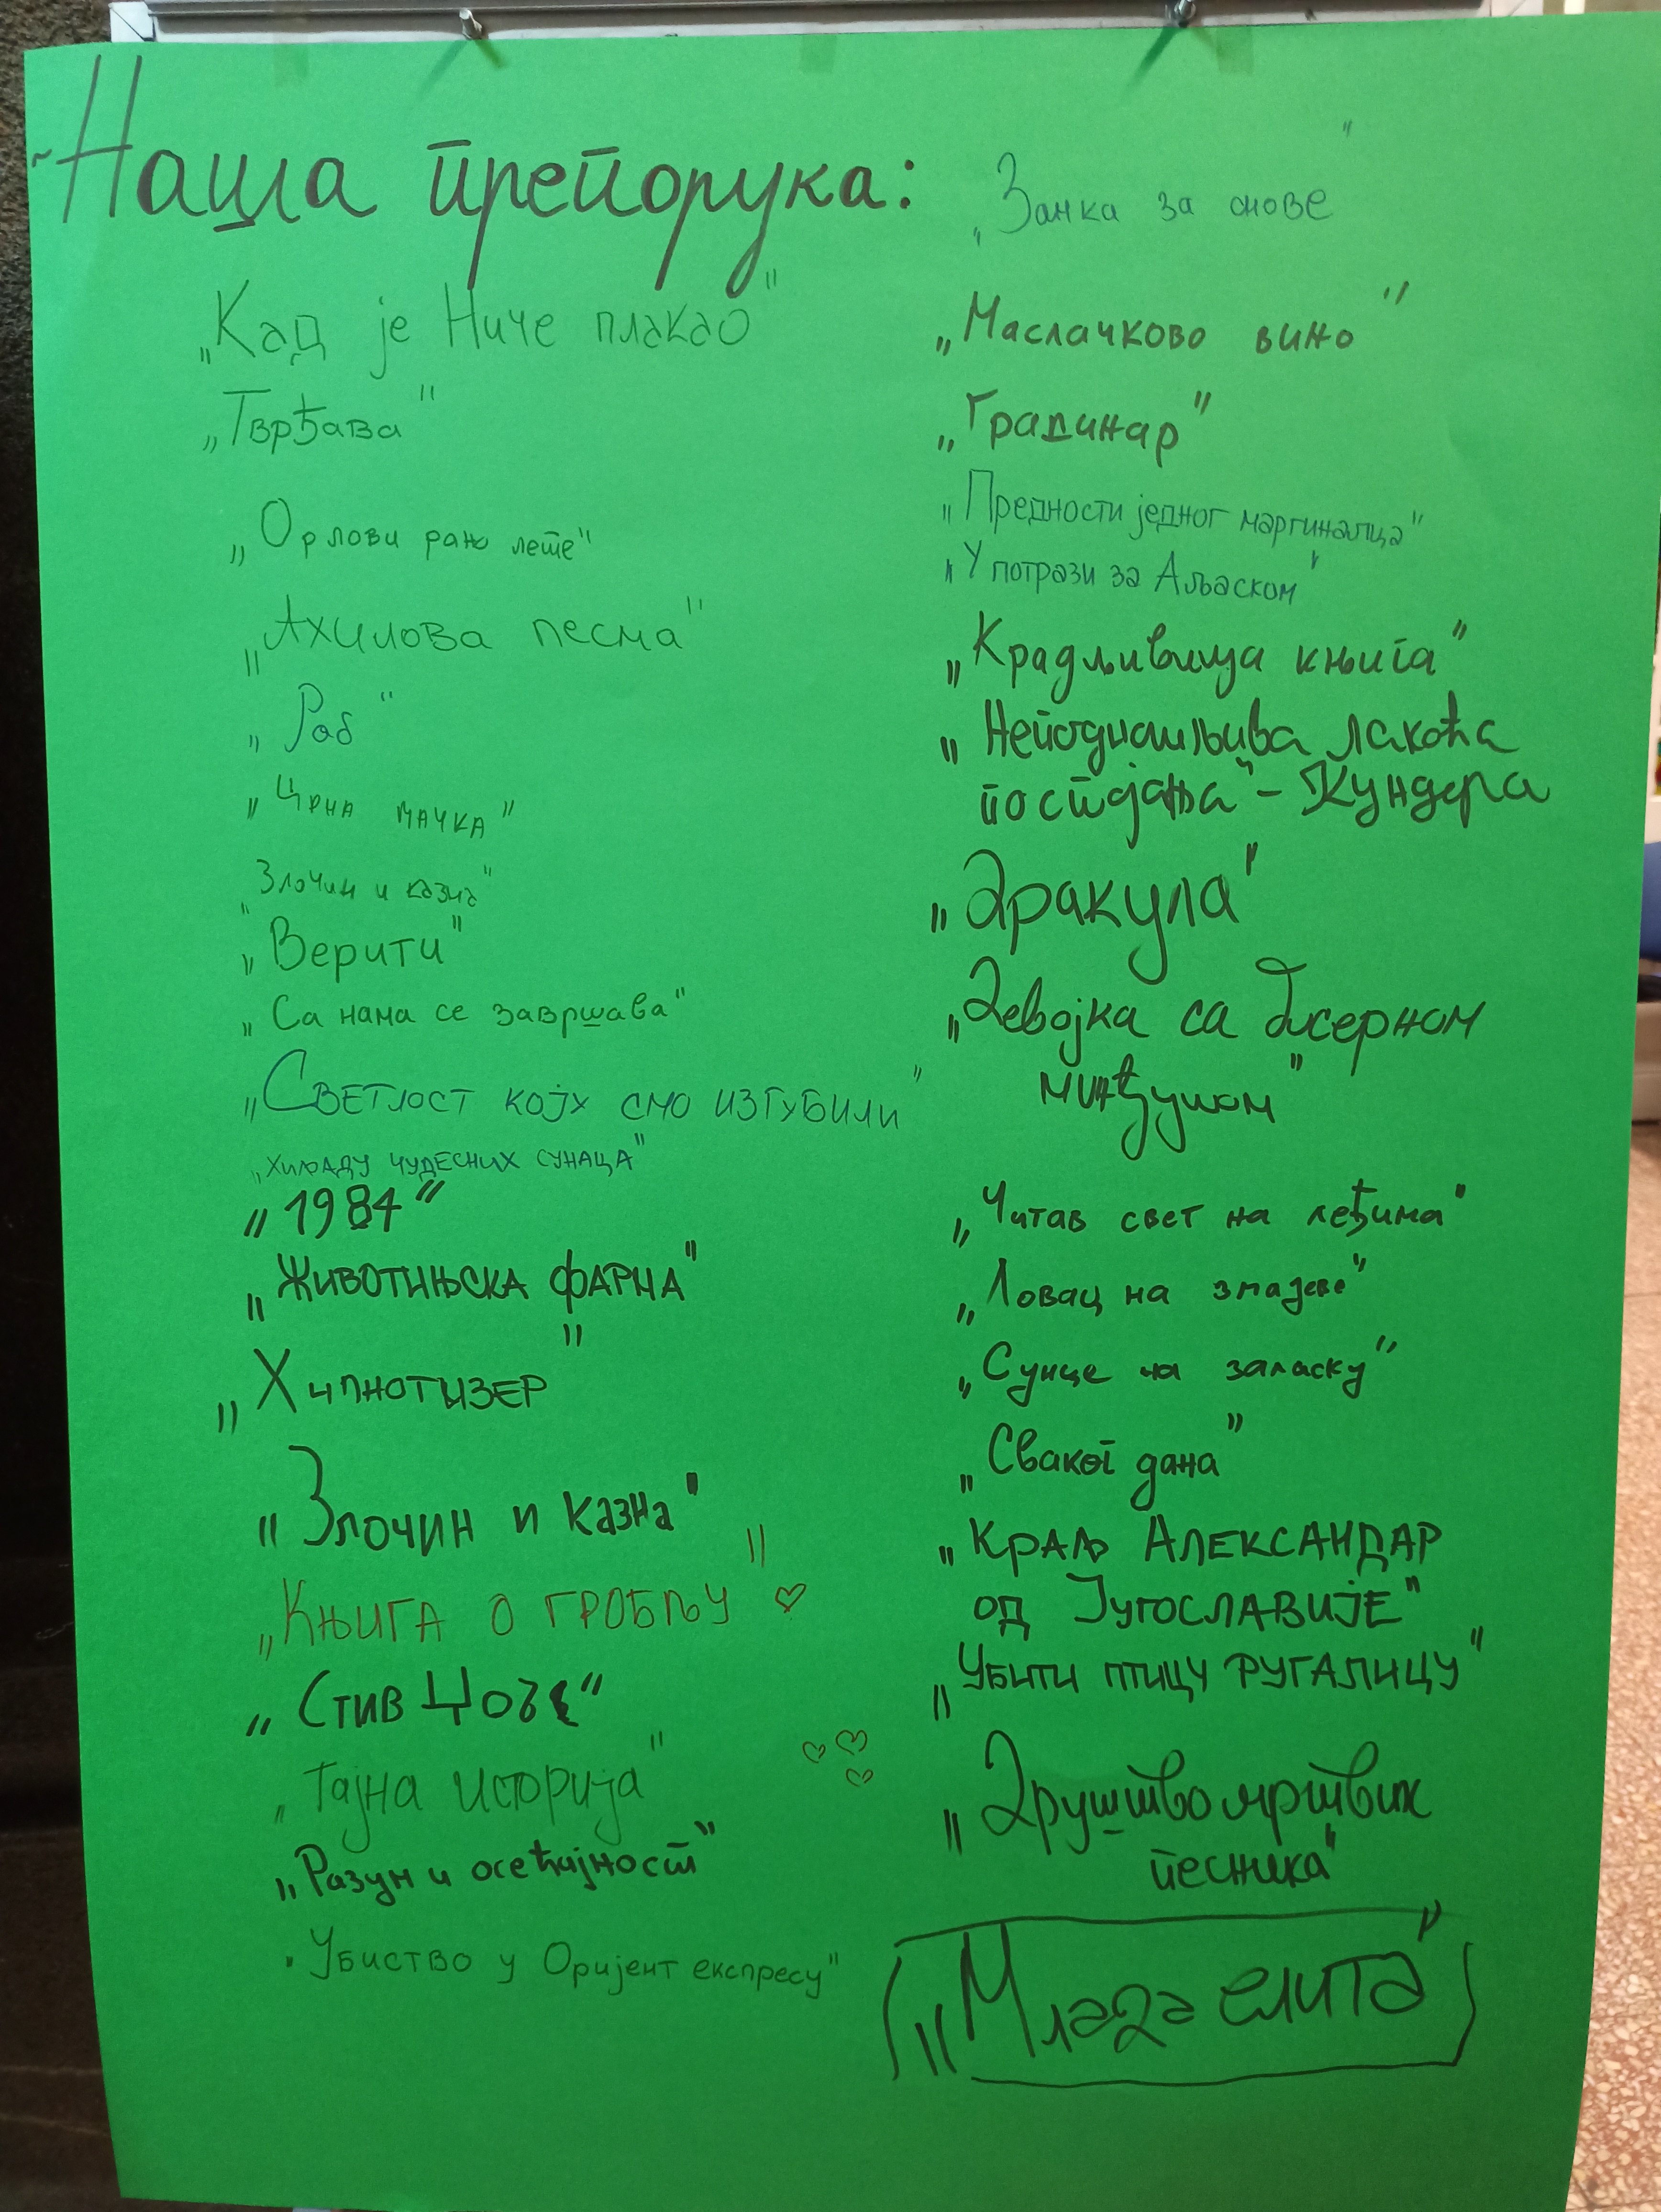 Наша препорука:
„Кад је Ниче плакао"
„Тврђава"
„Орлови рано лете"
„Ахилова песма"
„Роб"
„Црна мачка"
„Злочин и казна"
„Верити"
„Са нама се завршава"
„Светлост коју смо изгубили"
„Хиљаду чудесних сунаца"
„1984"
„Животињска фарма"
„Хипнотизер"
„Злочин и казна"
„Књига о гробљу"
„Стив Џобс"
„Тајна историја"
„Разум и осећајност"
„Убиство у Оријент експресу"
„Замка за снове"
„Маслачково вино"
„Градинар"
„Предности једног маргиналца"
„У потрази за Аљаском"
„Крадљивица књига"
„Неподношљива лакоћа
постојања" - Кундера
„Дракула"
„Девојка са бисерном
минђушом"
„Читав свет на леђима"
„Ловац на змајеве"
„Сунце на заласку"
„Сваког дана"
„Краљ Александар
од Југославије"
„Убити птицу ругалицу"
„Друштво мртвих
песника"
„Млада елита"